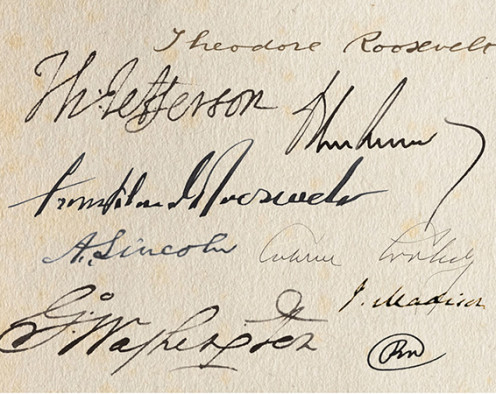 Theodore Roosevelt
Th. Jefferson
Franklin D. Roosevelt
A. Lincoln
J. Madison
G. Washington